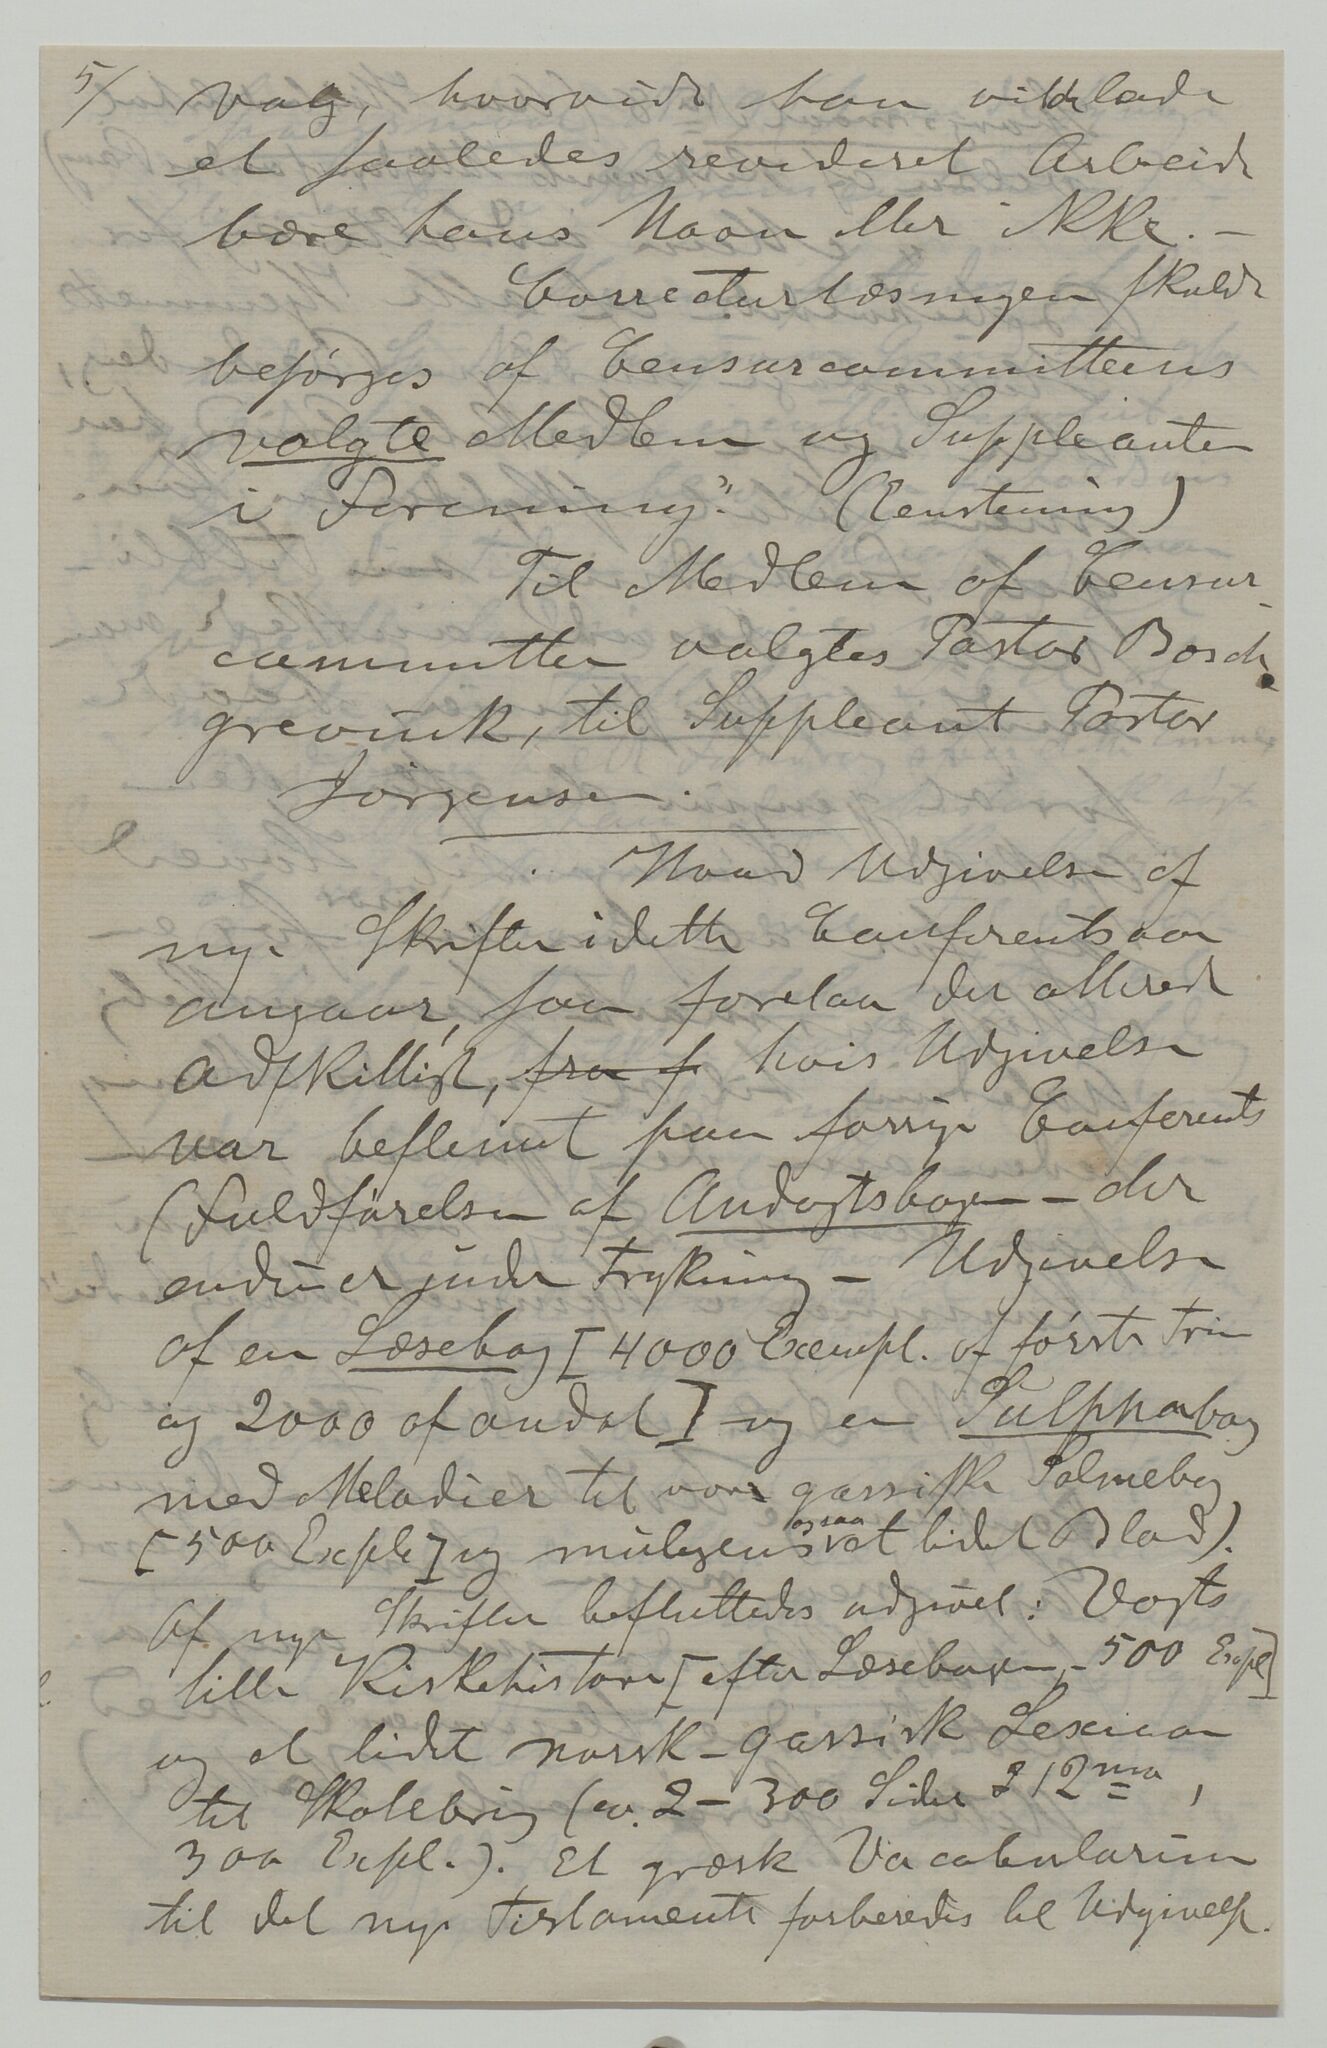 5/ valg, hvorvidt han vilde lade
et saaledes revideret Arbeide
bære hans Navn eller ikke. –
Correcturlæsningen skulde
besørges af Censurcommitteens
valgte Medlem og Suppleanten
i Forening". (Eenstemig)
Til Medlem af Censur-
committeen valgtes Pastor Borch-
grevink, til Suppleant Pastor
Jörgensen.
Hvad Udgivelse af
nye Skrifter i dette Conferentsaar
angaar, saa forelaa der allerede
adskilligt, fra f hvis Udgivelse
var bestemt paa forrige Conferents
(Fuldförelsen af Andagtsbogen – der
endnu er under Trykning – Udgivelse
af en Læsebog [4000 Exempl. af förste Trin
og 2000 af andet] og en Sulphabog
med Melodier til vor gassiske Salmebog
[500 Exple] og muligens ogsaa et lidet Blad).
Af nye Skrifter besluttedes udgivet: Vogts
lille Kirkehistorie [efter Læsebogen – 500 Expl]
og et lidet norsk-gassisk Lexicon
til Skolebrug (ca. 2–300 Sider 12mo,
300 Expl.). Et græsk Vocabularium
til det nye Testamente forberedes til Udgivelse.